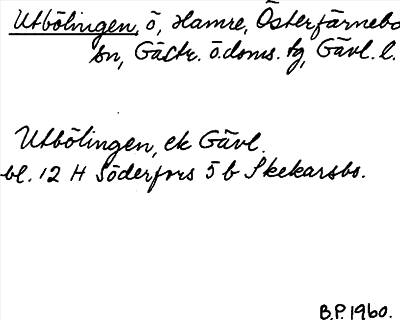 Utbölingen, ö, Hamre, Österfärnebo
sn, Gästr. ö. doms. tg, Gävl. l.
Utbölingen, ek Gävl.
bl. 12 H Söderfors 5 b Skekarsbo.
B.P. 1960.